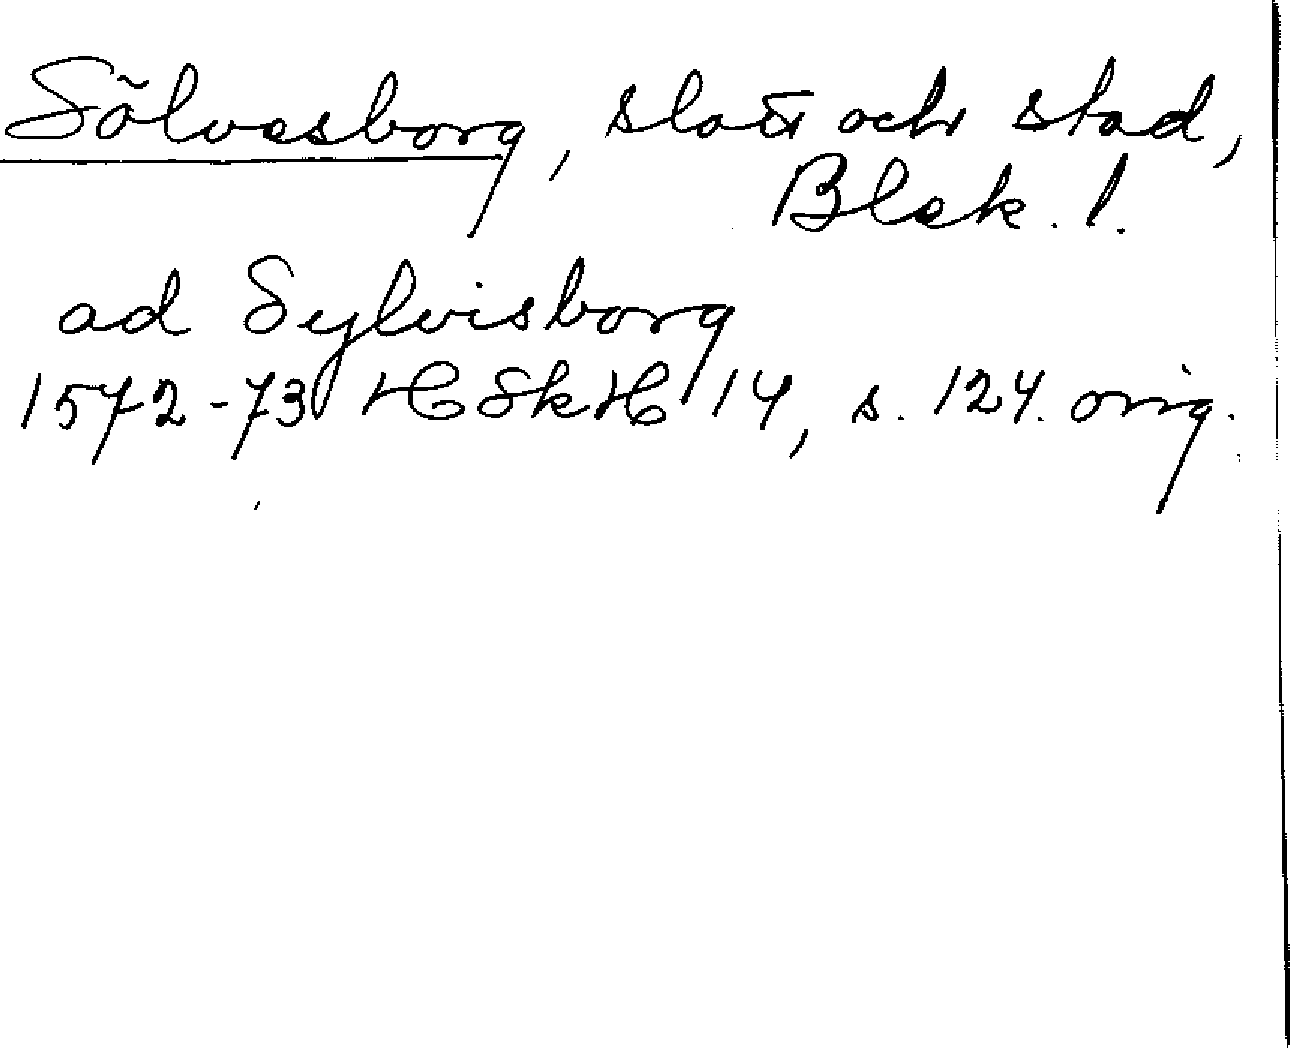 Sölvesborg, slott och stad,
Blek. l.
ad Sylvisborg
1572-73 HSkH 14, s. 124. orig.